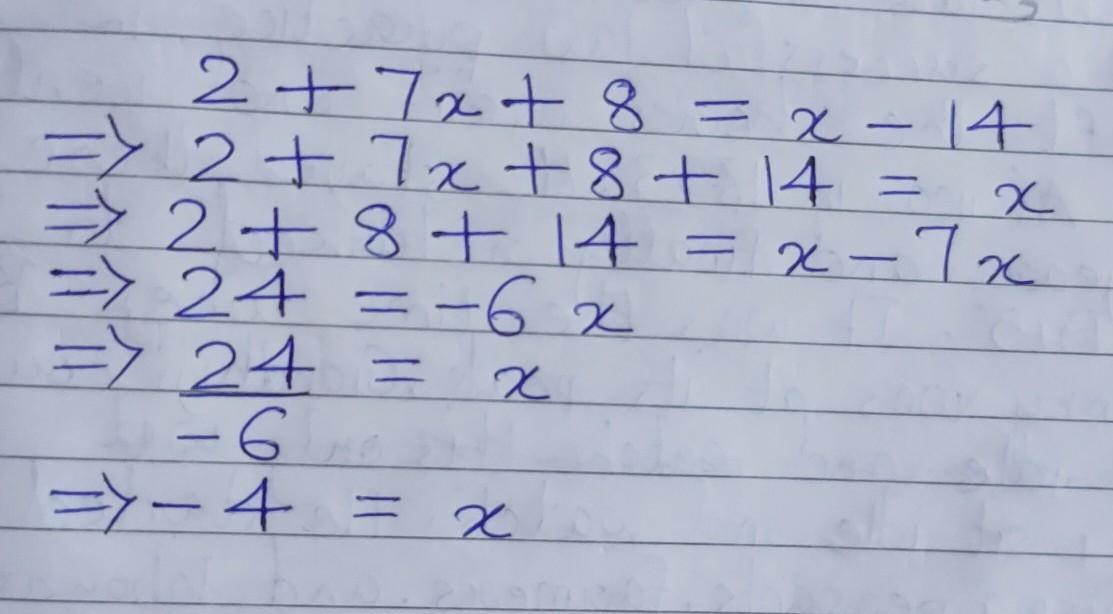 2 + 7x + 8 = x - 14
=> 2 + 7x + 8 + 14 = x
=> 2 + 8 + 14 = x - 7x
=> 24 = -6 x
=> 24 = x
-6
=> - 4 = x